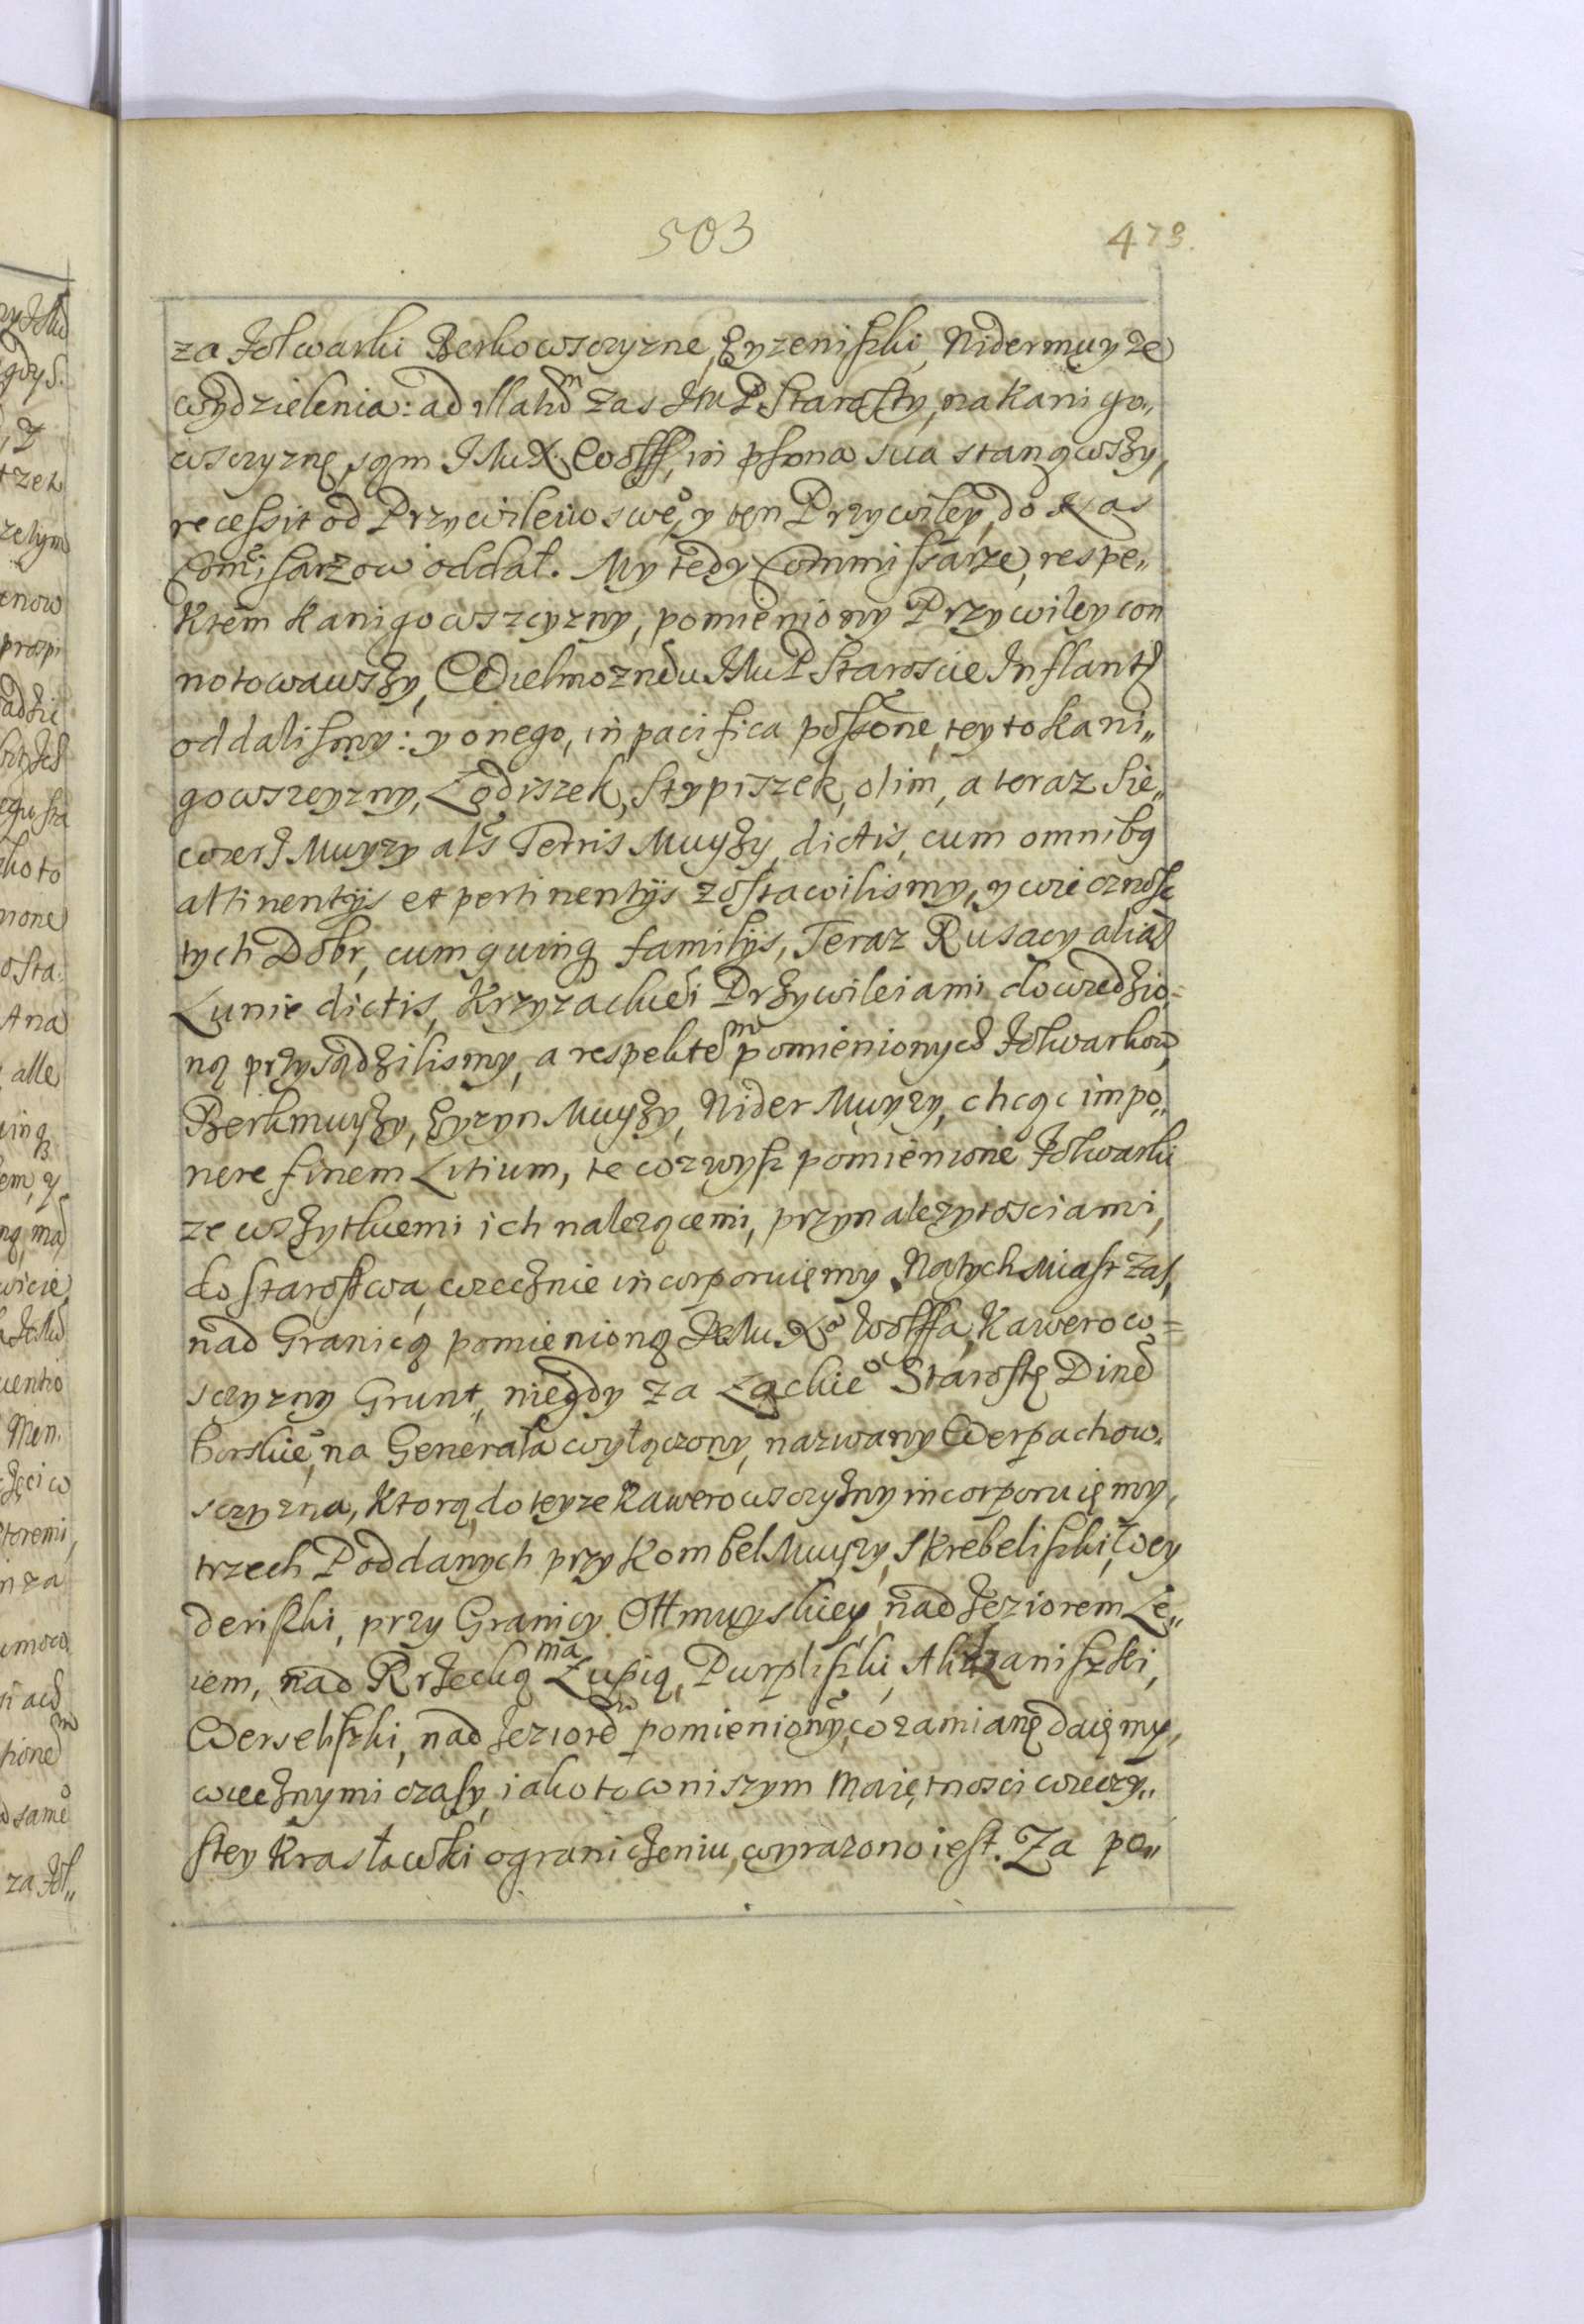 503
473.
za Folwarki Berkowsczyzne, Eyzeniszki, Nidermuyże
wydzielenia: ad illatu᷃ᵐ zas JMP. Starosty, na Kanigo„
wsczyznę, sąm JMX. Wolff, in psona sua stanąwszy,
recessit od Przywileiu sweº, y tęn Przywiley, do Nas
Com̃issarzow oddał. My tedy Commissarze, respe„
ktem Kanigowszczyzny, pomieniony Przywiley con
notowawszy, Wielmoznemu JMP Staroscie Inflantt
oddalismy: y onego, in pacifica possone, tey to Kani„
gowszczyzny, Lodiszek, Stypiszek, olim, a teraz Sie„
wers Muyzy als Tetris Muyzy, dictis, cum omnibq
attinentijs et pertinentijs zostawilismy, y wiecznosc
tych Dobr, cum quinq familijs, Teraz Rusacy alias
Lunie dictis, Krzyzackiei Przywileiami dowiedzio=
ną przysądzilismy, a respekteᵐ pomienionych Folwarkow,
Berkmuyzy, Eyzyn Muyzy, Nider Muyzy, chcąc impo„
nere finem Litium, te wzwysz pomienione Folwarki
ze wszytkiemi ich nalezącemi, przynalezytosciami,
do Starostwa, wiecznie incorporuięmy. Natych Miast zas,
nad Granicą pomienioną JeMu Xº Wolffa, Kawerow=
sczyzny Grunt, niegdy za Łąckieº Starostę Dineᵇ
borskieº, na Generała wyłączony, nazwany Werpachow„
sczyzna, Ktorą, do teyze Kawerowsczyzny incorporuięmy,
trzech Poddanych przy Kombel Muyzy, Skrebeliszki, Wey
deriszki, przy Granicy Ottmuyskiey, nad Jeziorem Le„
iem, nad Rzeckąᵐᵃ Łupią, Purpliszki, Alidzaniszki,
Werseliszki, nad Jezioreᵐ pomienionỹ, w zamianę daięmy,
wiecznymi czasy, iako to w niszym Maiętnosci wieczy„
stey Krasławki ograniczeniu, wyrazono iest. Za po„